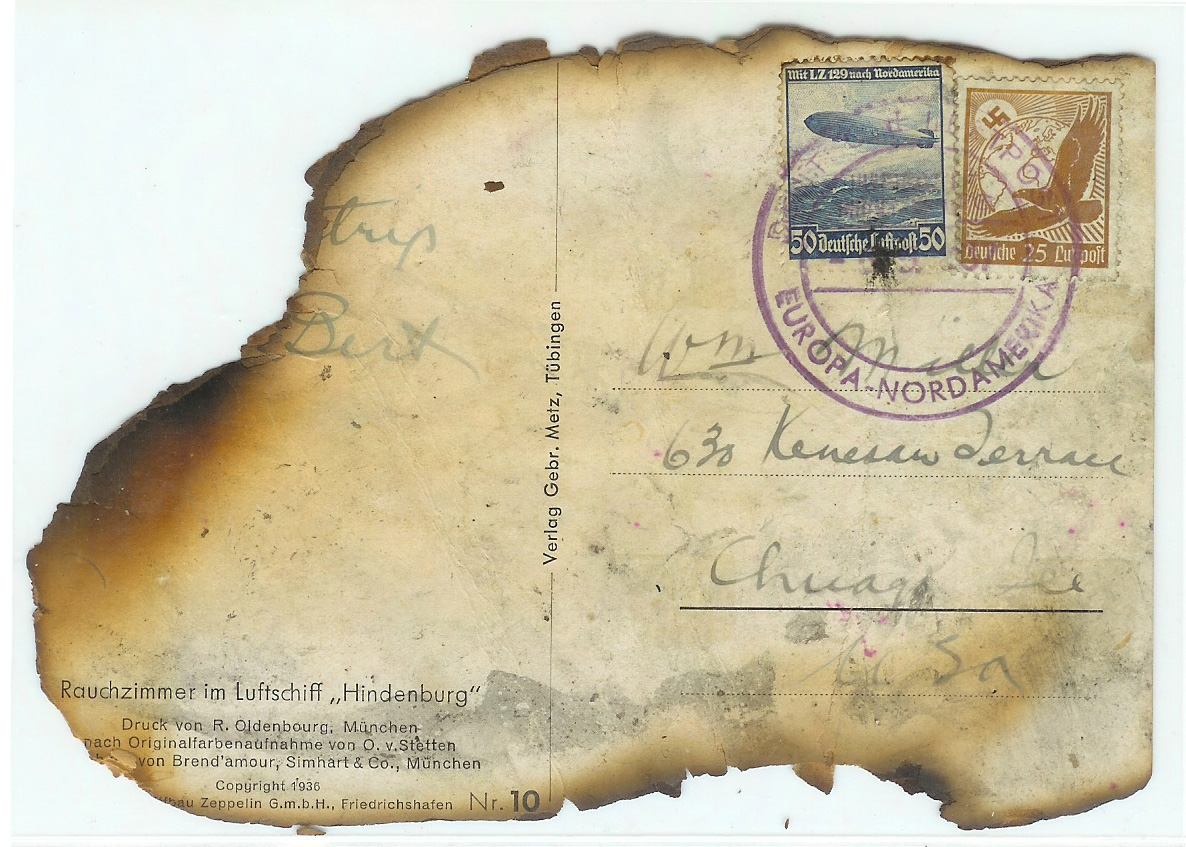 Mit LZ 129 nach Nordamerika
50 Deutsche Luftpost 50
Deutsche 25 Luftpost
EUROPA-NORDAMERIKA
trip
Bert
Wm Miller
630 Kenesaw Terrace
Chicago Ill
U Sa
Verlag Gebr. Metz, Tübingen
Rauchzimmer im Luftschiff „Hindenburg“
Druck von R. Oldenbourg, München
nach Originalfarbenaufnahme von O. v. Stetten
von Brend'amour, Simhart & Co., München
Copyright 1936
bau Zeppelin G.m.b.H., Friedrichshafen
Nr. 10